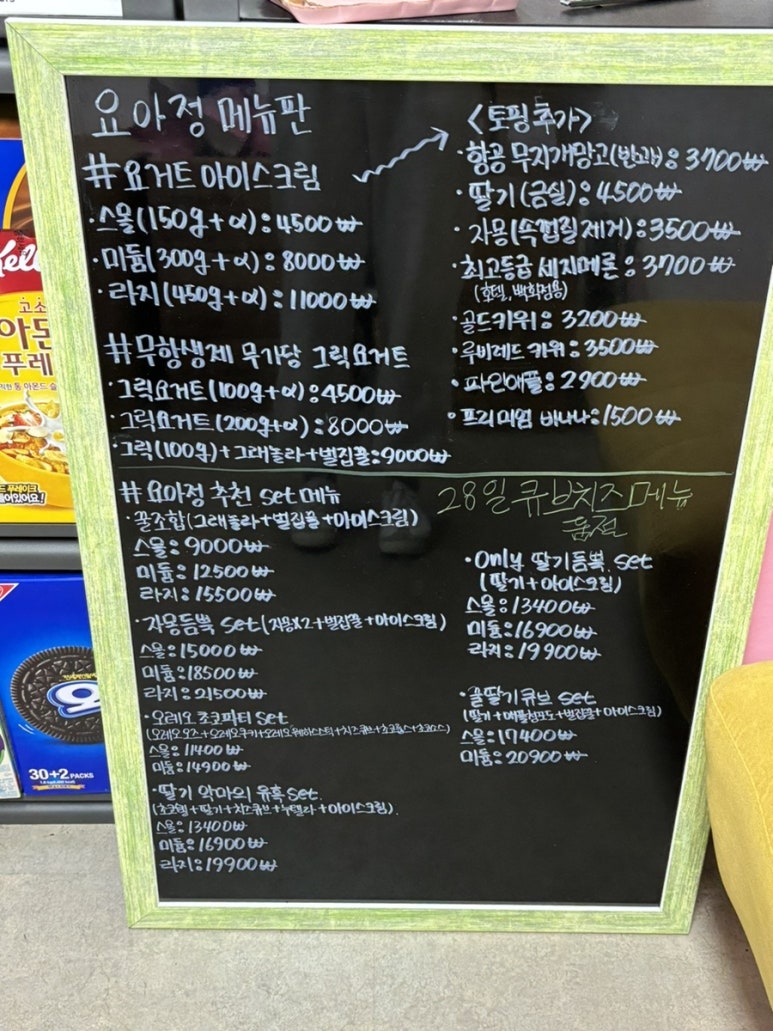 요아정 메뉴판
#요거트 아이스크림
·스몰(150g+α):4500₩
·미듐(300g+α):8000₩
·라지(450g+α):11000₩
#무항생제 무가당 그릭요거트
·그릭요거트(100g+α):4500₩
·그릭요거트(200g+α):8000₩
·그릭(100g)+그래놀라+벌집꿀:9000₩
<토핑추가>
·항공 무지개망고(반개):3700₩
·딸기(금실):4500₩
·자몽(속껍질제거):3500₩
·최고등급 세지메론:3700₩
(호텔,백화점용)
·골드키위:3200₩
·루비레드 키위:3500₩
·파인애플:2900₩
·프리미엄 바나나:1500₩
#요아정 추천 set 메뉴
·꿀조합(그래놀라+벌집꿀+아이스크림)
스몰:9000₩
미듐:12500₩
라지:15500₩
·자몽듬뿍 set(자몽x2+벌집꿀+아이스크림)
스몰:15000₩
미듐:18500₩
라지:21500₩
·오레오 초코파티 set
스몰:11400₩
미듐:14900₩
·딸기 악마의 유혹 set.
(초코쉘+딸기+치즈큐브+누텔라+아이스크림)
스몰:13400₩
미듐:16900₩
라지:19900₩
28일 큐브치즈메뉴
품절
·Only 딸기듬뿍 set
(딸기+아이스크림)
스몰:13400₩
미듐:16900₩
라지:19900₩
·꿀딸기큐브 set
스몰:17400₩
미듐:20900₩
고소
아몬
푸레
들어있어요!
30+2 PACKS